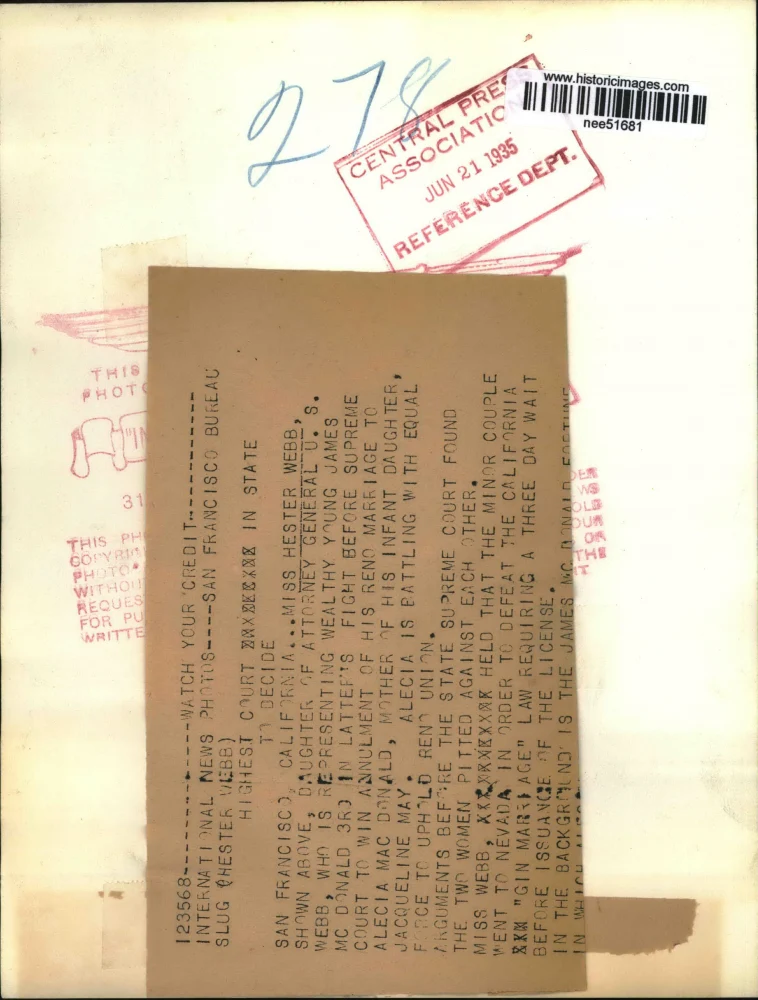 278
www.historicimages.com
nee51681
CENTRAL PRESS
ASSOCIATION
JUN 21 1935
REFERENCE DEPT.
THIS
PHOTO
31
THIS
PHOTO
WITHOU
REQUES
FOR PU
WRITTE
OR
THE
123568----------WATCH YOUR CREDIT----------
INTERNATIONAL NEWS PHOTOS----SAN FRANCISCO BUREAU
SLUG (HESTER WEBB)
HIGHEST COURT IN STATE
TO DECIDE
SAN FRANCISCO, CALIFORNIA...MISS HESTER WEBB,
SHOWN ABOVE, DAUGHTER OF ATTORNEY GENERAL U. S.
WEBB, WHO IS REPRESENTING WEALTHY YOUNG JAMES
MC DONALD 3RD IN LATTER'S FIGHT BEFORE SUPREME
COURT TO WIN ANNULMENT OF HIS RENO MARRIAGE TO
ALECIA MAC DONALD, MOTHER OF HIS INFANT DAUGHTER,
JACQUELINE MAY. ALECIA IS BATTLING WITH EQUAL
FORCE TO UPHOLD RENO UNION.
ARGUMENTS BEFORE THE STATE SUPREME COURT FOUND
THE TWO WOMEN PITTED AGAINST EACH OTHER.
MISS WEBB, HELD THAT THE MINOR COUPLE
WENT TO NEVADA IN ORDER TO DEFEAT THE CALIFORNIA
XXX "GIN MARRIAGE" LAW REQUIRING A THREE DAY WAIT
BEFORE ISSUANCE OF THE LICENSE.
IN THE BACKGROUND IS THE JAMES MC DONALD FORTUNE
IN WHICH